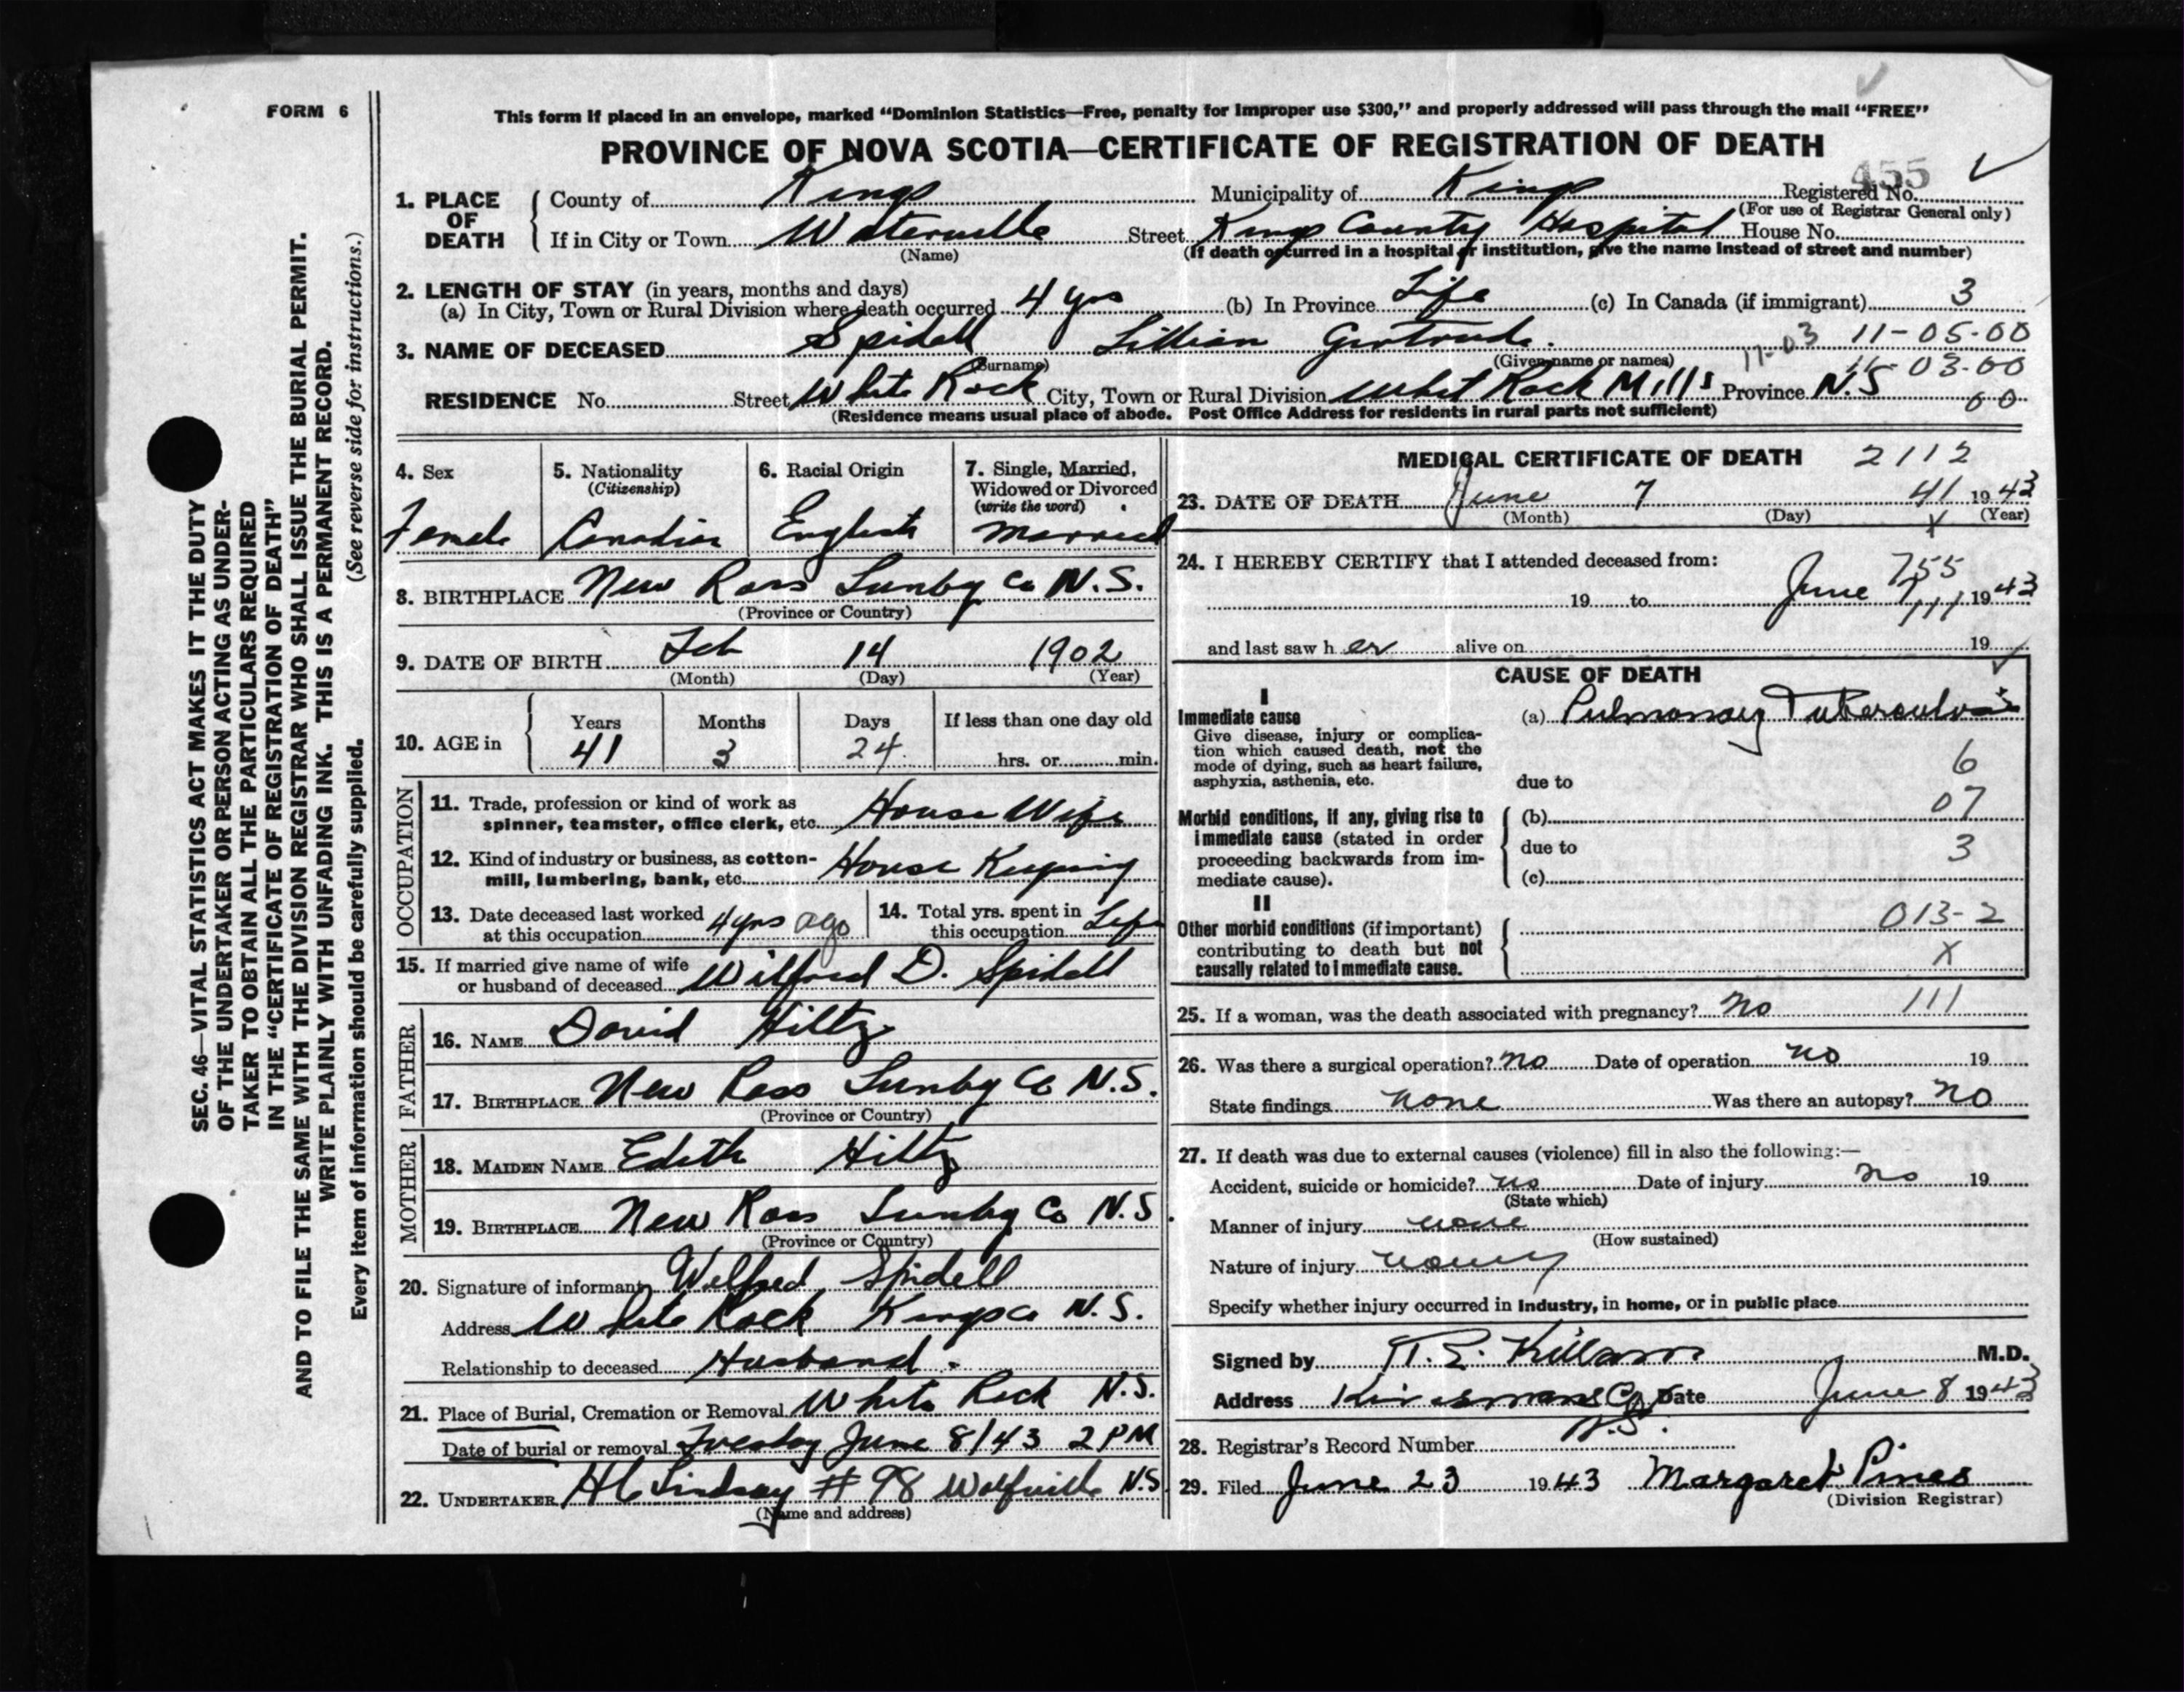 FORM 6
This form if placed in an envelope, marked “Dominion Statistics—Free, penalty for improper use $300,” and properly addressed will pass through the mail “FREE”
PROVINCE OF NOVA SCOTIA—CERTIFICATE OF REGISTRATION OF DEATH
455
1. PLACE OF DEATH County of Kings Municipality of Kings Registered No.
(For use of Registrar General only)
If in City or Town Waterville Street Kings County Hospital House No.
(Name) (If death occurred in a hospital or institution, give the name instead of street and number)
2. LENGTH OF STAY (in years, months and days)
(a) In City, Town or Rural Division where death occurred 4 yrs (b) In Province Life (c) In Canada (if immigrant) 3
3. NAME OF DECEASED Spidell Lillian Gertrude. 11-03 11-05-00
(Surname) (Given name or names) 11-03-00
RESIDENCE No. Street White Rock City, Town or Rural Division Whit Rock Mills Province N.S 00
(Residence means usual place of abode. Post Office Address for residents in rural parts not sufficient)
4. Sex
Female
5. Nationality
(Citizenship)
Canadian
6. Racial Origin
English
7. Single, Married,
Widowed or Divorced
(write the word)
Married
8. BIRTHPLACE New Ross Lunbg Co N.S.
(Province or Country)
9. DATE OF BIRTH Feb 14 1902
(Month) (Day) (Year)
10. AGE in Years Months Days If less than one day old
41 3 24 hrs. or min.
OCCUPATION
11. Trade, profession or kind of work as
spinner, teamster, office clerk, etc. House Wife
12. Kind of industry or business, as cotton-
mill, lumbering, bank, etc. House Keeping
13. Date deceased last worked
at this occupation 4 yrs ago
14. Total yrs. spent in
this occupation Life
15. If married give name of wife
or husband of deceased Wilfred D. Spidell
FATHER
16. NAME David Hiltz
17. BIRTHPLACE New Ross Lunbg Co N.S.
(Province or Country)
MOTHER
18. MAIDEN NAME Edith Hiltz
19. BIRTHPLACE New Ross Lunbg Co N.S.
(Province or Country)
20. Signature of informant Wilfred Spidell
Address White Rock Kings Co N.S.
Relationship to deceased Husband.
21. Place of Burial, Cremation or Removal White Rock N.S.
Date of burial or removal Tuesday June 8/43 2 PM
22. UNDERTAKER H C Lindsay # 98 Wolfville N.S.
(Name and address)
MEDICAL CERTIFICATE OF DEATH 2112
23. DATE OF DEATH June 7 41 1943
(Month) (Day) X (Year)
24. I HEREBY CERTIFY that I attended deceased from:
755
19 to June 7 1943
111
and last saw her alive on 19
CAUSE OF DEATH
I
Immediate cause
Give disease, injury or complica-
tion which caused death, not the
mode of dying, such as heart failure,
asphyxia, asthenia, etc.
(a) Pulmonary Tuberculosis
6
due to
07
Morbid conditions, if any, giving rise to
immediate cause (stated in order
proceeding backwards from im-
mediate cause).
(b)
due to 3
(c)
II
Other morbid conditions (if important)
contributing to death but not
causally related to immediate cause.
013-2
X
25. If a woman, was the death associated with pregnancy? No 111
26. Was there a surgical operation? No Date of operation no 19
State findings none Was there an autopsy? No
27. If death was due to external causes (violence) fill in also the following:—
Accident, suicide or homicide? no Date of injury no 19
(State which)
Manner of injury none
(How sustained)
Nature of injury
Specify whether injury occurred in industry, in home, or in public place
Signed by Killam M.D.
Address Kinsmans Cor Date June 8 1943
N.S.
28. Registrar's Record Number
29. Filed June 23 1943 Margaret Pines
(Division Registrar)
SEC. 46—VITAL STATISTICS ACT MAKES IT THE DUTY
OF THE UNDERTAKER OR PERSON ACTING AS UNDER-
TAKER TO OBTAIN ALL THE PARTICULARS REQUIRED
IN THE “CERTIFICATE OF REGISTRATION OF DEATH”
AND TO FILE THE SAME WITH THE DIVISION REGISTRAR WHO SHALL ISSUE THE BURIAL PERMIT.
WRITE PLAINLY WITH UNFADING INK. THIS IS A PERMANENT RECORD.
Every item of information should be carefully supplied. (See reverse side for instructions.)